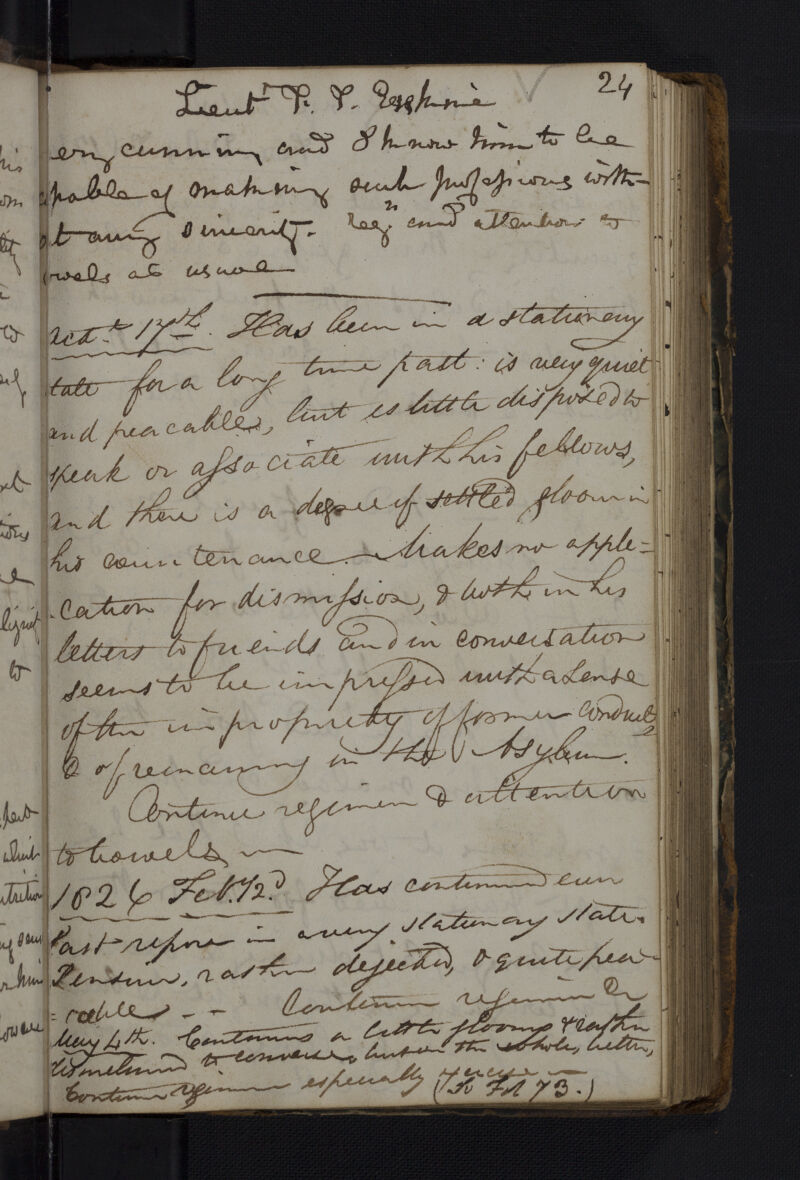 24
Lieut.t T. T. Erskine
ery cunning and I know him to be
apable of making such professions with-
t any sincerity. Reg.n and attention to
owels as usual
Oct.r 17th. Has been in a stationary
tate for a long time past: is very quiet
and peacable, but is little disposed to
speak or associate with his fellows,
and there is a degree of settled gloom in
his countenance. Makes no appli=
-cation for dismission, & both in his
letters to friends and in conversation
seems to be impressed with a sense
of the impropriety of former conduct,
& of remaining in the Asylum.
Continue regimen & attention
to bowels
1826 Feb. 2.d Has continued ever
last report in a very stationary state.
Pensive, rather dejected, & quite pea-
=cable -- Continue regimen &c
May 4th. Continues a little gloomy & rather
to converse, but on the whole, better,
Continue regimen especially
(To Fol 73.)